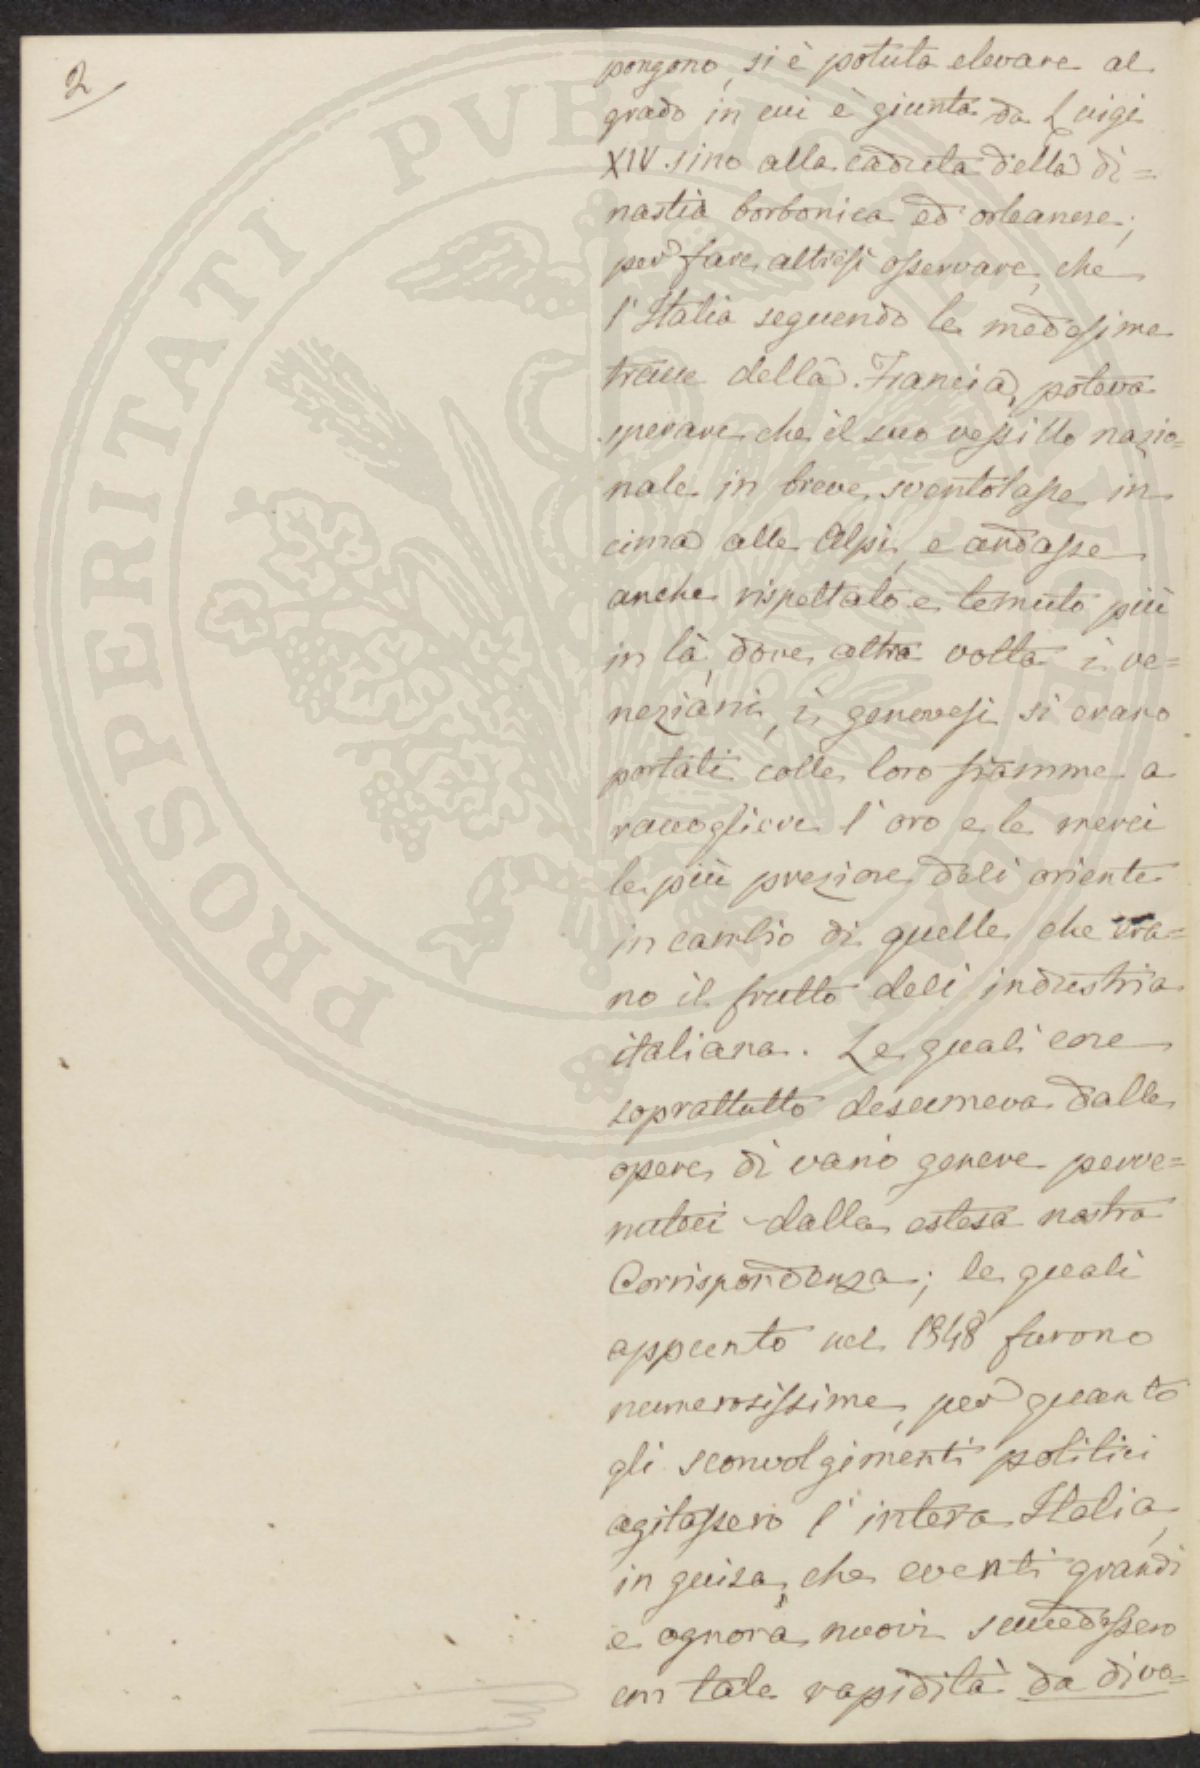 2
pongono, si è potuta elevare al
grado in cui è giunta da Luigi
XIV sino alla caduta della di=
nastia borbonica ed orleanese;
per fare altresì osservare, che
l'Italia seguendo le medesime
tracce della Francia, poteva
sperare che il suo vessillo nazio=
nale in breve sventolasse in
cima alle Alpi, e andasse
anche rispettato e temuto più
in là, dove altra volta i ve=
neziani, i genovesi si erano
portati colle loro fiamme a
raccogliere l'oro e le merci
le più preziose dell'oriente
in cambio di quelle che era=
no il frutto dell'industria
italiana. Le quali cose
soprattutto desumeva dalle
opere di vario genere perve=
nuteci dalla estesa nostra
Corrispondenza; le quali
appunto nel 1848 furono
numerosissime, per quanto
gli sconvolgimenti politici
agitassero l'intera Italia,
in guisa, che eventi grandi
e ognora nuovi succedessero
con tale rapidità da diva=
PROSPERITATI PUBLICAE